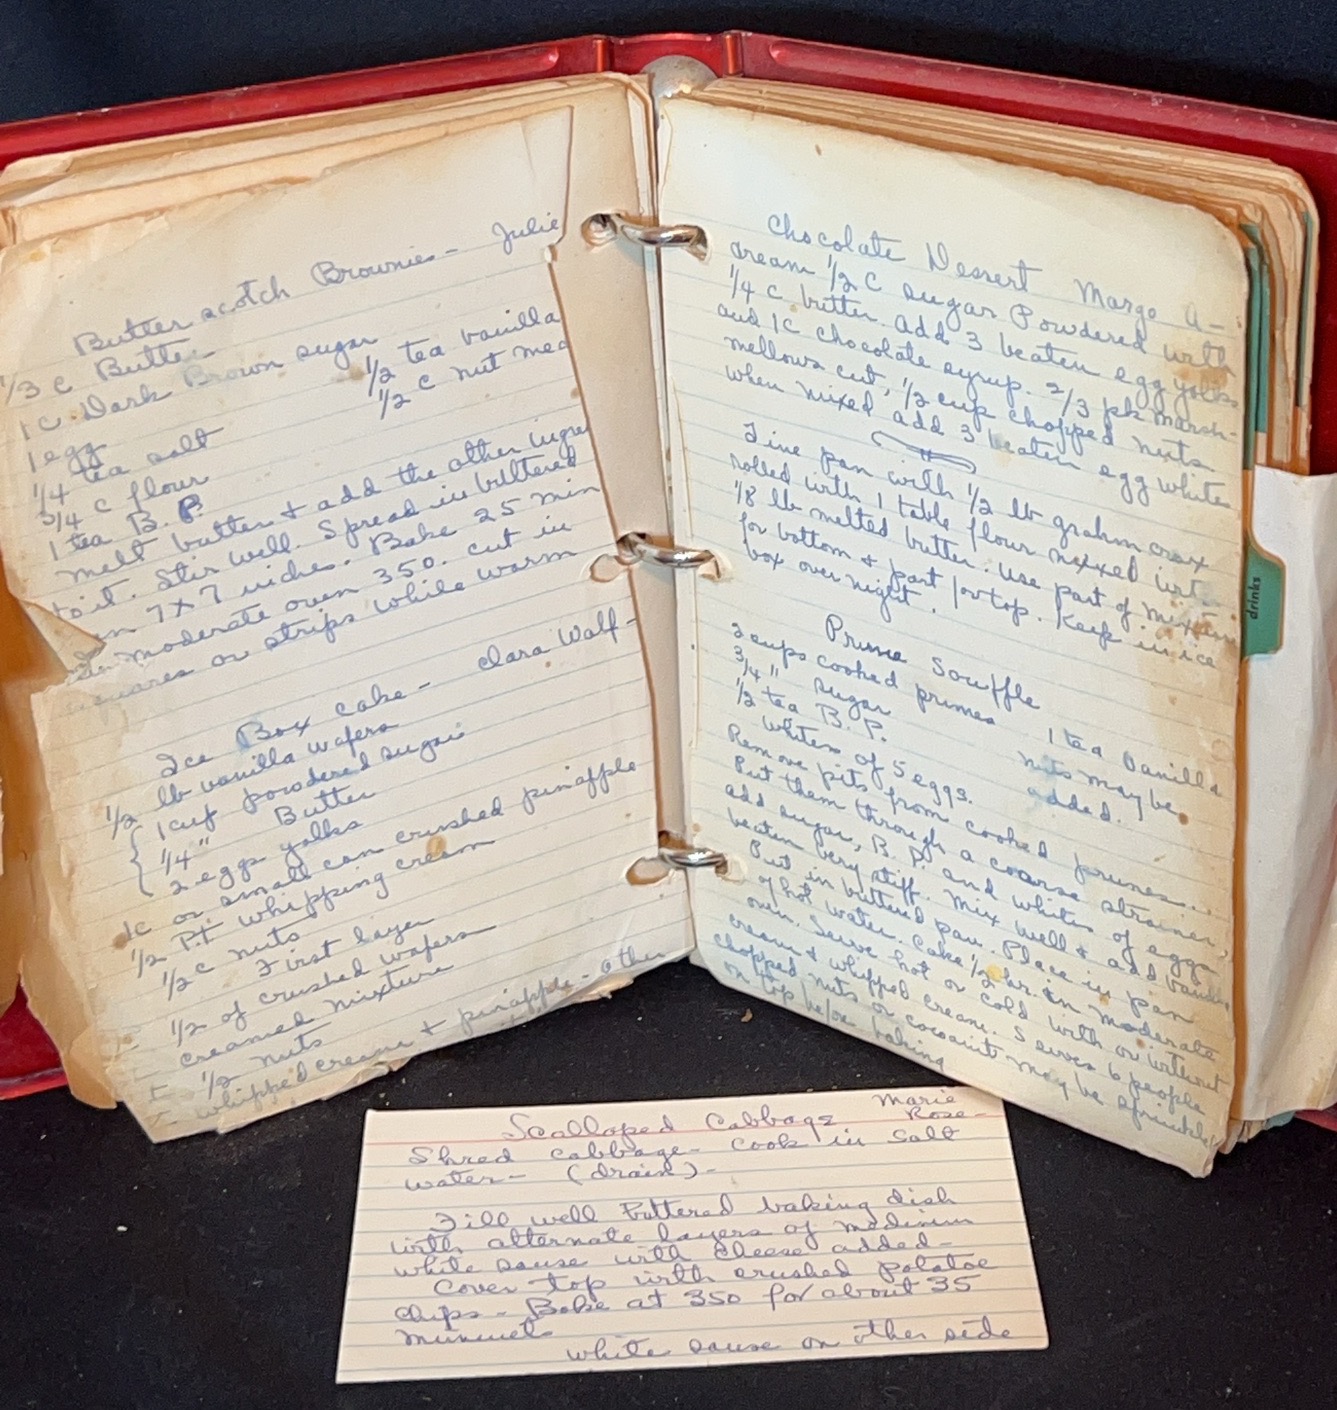 Butter scotch Brownies - Julie
1/3 c Butter
1 c. Dark Brown sugar
1 egg
1/2 tea vanilla
1/4 tea salt
1/2 c nut mea
3/4 c flour
1 tea B. P.
melt butter + add the other ingre
to it. Stir well. Spread in buttered
pan 7 x 7 inches. Bake 25 min
in moderate oven 350. cut in
squares or strips while warm
Ice Box cake - Clara Walf-
1/2 lb vanilla wafers
1 cup powdered sugar
1/4 " Butter
2 eggs yolks
1c or small can crushed pinapple
1/2 Pt whipping cream
1/2 c nuts
First layer
1/2 of crushed wafers
creamed mixture
1/2 nuts
whipped cream + pinapple - other
Chocolate Dessert Marge A-
cream 1/2 C sugar Powdered with
1/4 c butter. Add 3 beaten egg yolks
and 1c chocolate syrup. 2/3 pk marsh-
mellows cut, 1/2 cup chopped nuts
when mixed add 3 beaten egg whites
Line pan with 1/2 lb grahm crax
rolled with 1 table flour mixed with
1/8 lb melted butter. Use part of mixture
for bottom + part for top. Keep in ice
box over night.
Prune Souffle
2 cups cooked prunes
3/4 " sugar
1 tea Vanilla
1/2 tea B. P.
nuts may be
whites of 5 eggs.
added.
Remove pits from cooked prunes.
Put them through a coarse strainer,
add sugar, B. P. and whites of eggs
beaten very stiff. Mix well + add vanilla
Put in buttered pan. Place in pan
of hot water. Cake 1/2 hr. in moderate
oven. Serve hot or cold with or without
cream + whipped cream. Serves 6 people
chopped nuts or cocoanut may be sprinkled
on top before baking
drinks
Scalloped Cabbage Marie
Rose-
Shred cabbage - cook in salt
water - (drain) -
Fill well buttered baking dish
with alternate layers of medium
white sause with cheese added -
Cover top with crushed potatoe
chips - Bake at 350 for about 35
minuets
white sause on other side